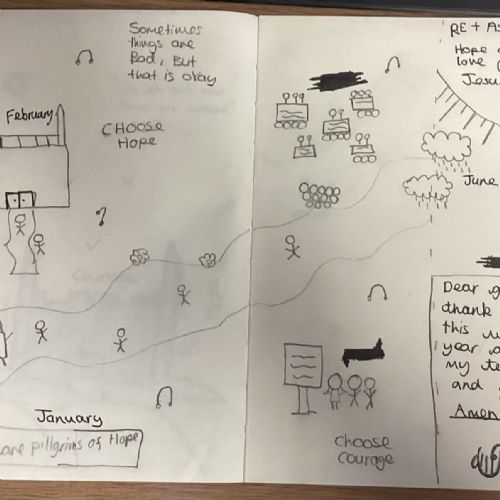 Sometimes
things are
Bad, But
that is okay
February
CHOOSE
HOPE
January
are pillgrims of Hope
RE + As
Hope
love
Jesu
June
choose
courage
Dear
thank
this
year
my te
and
Amen